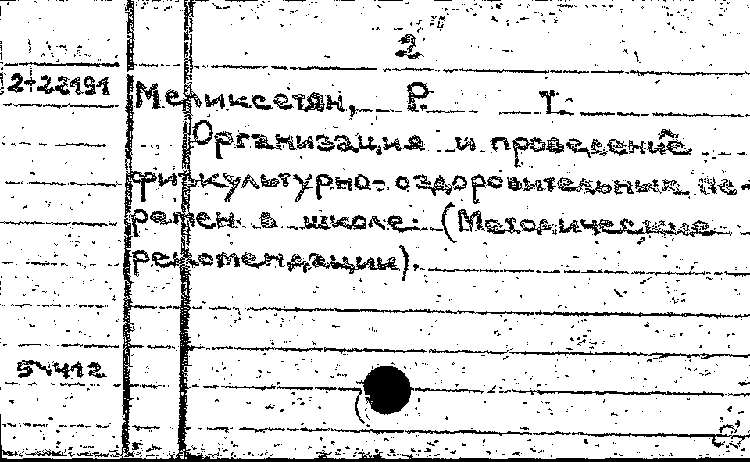 2
2-22191
Меликсетян, Р. Т.
Организация и проведение
физкультурно-оздоровительных пе-
ремен в школе. (Методические
рекомендации).